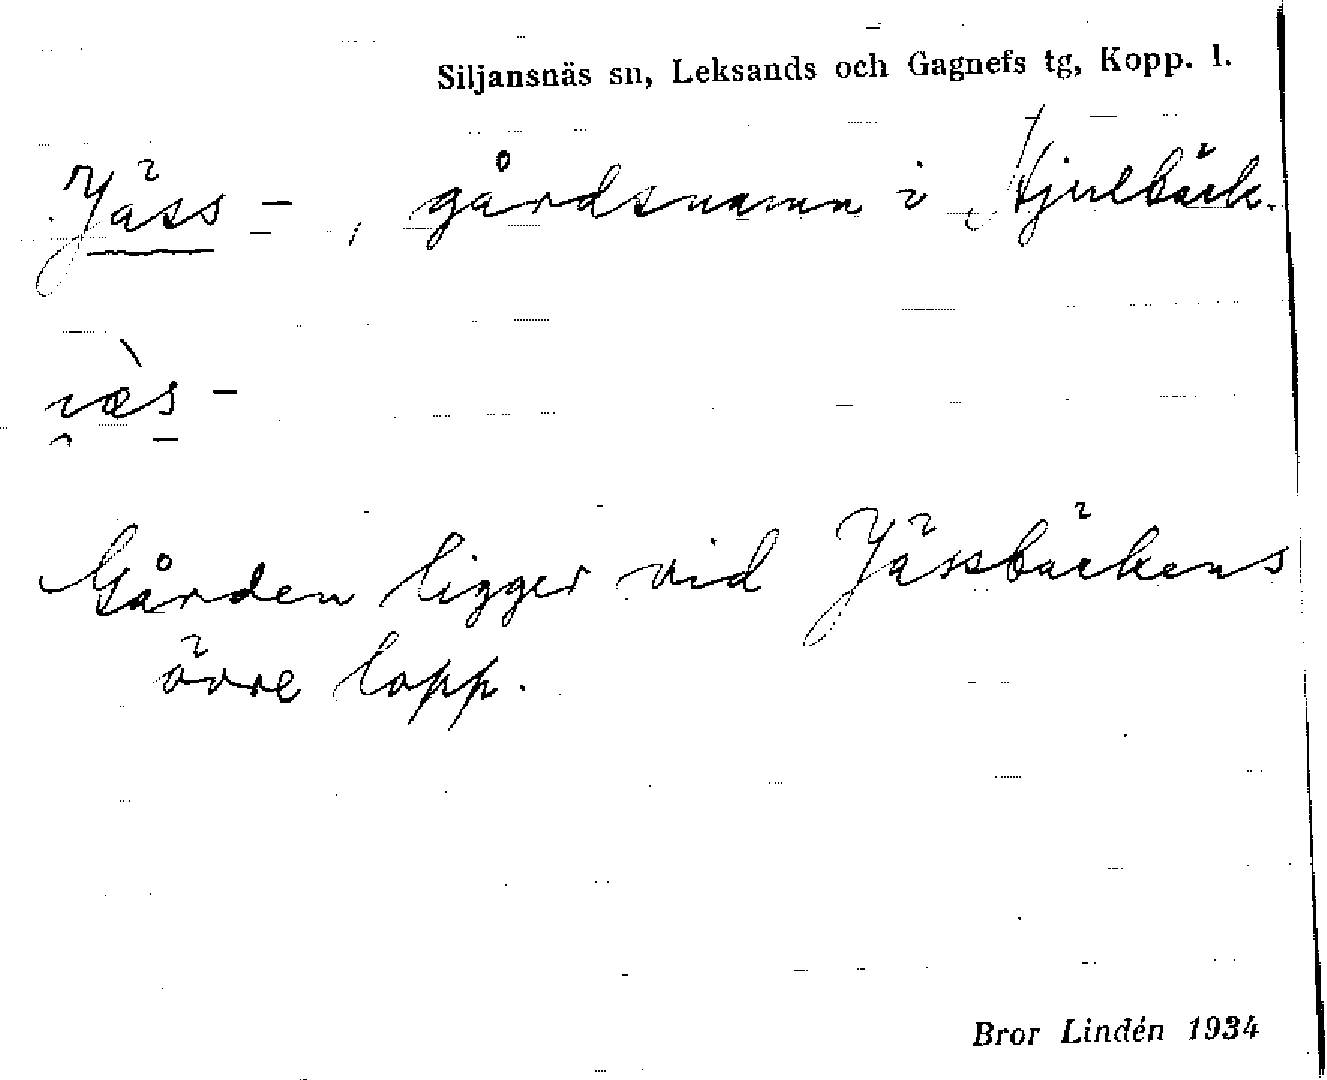 Siljansnäs sn, Leksands och Gagnefs tg, Kopp. l.
Jäss - , gårdsnamn i Hjulbäck.
Gården ligger vid Jässbäckens
övre lopp.
Bror Lindén 1934